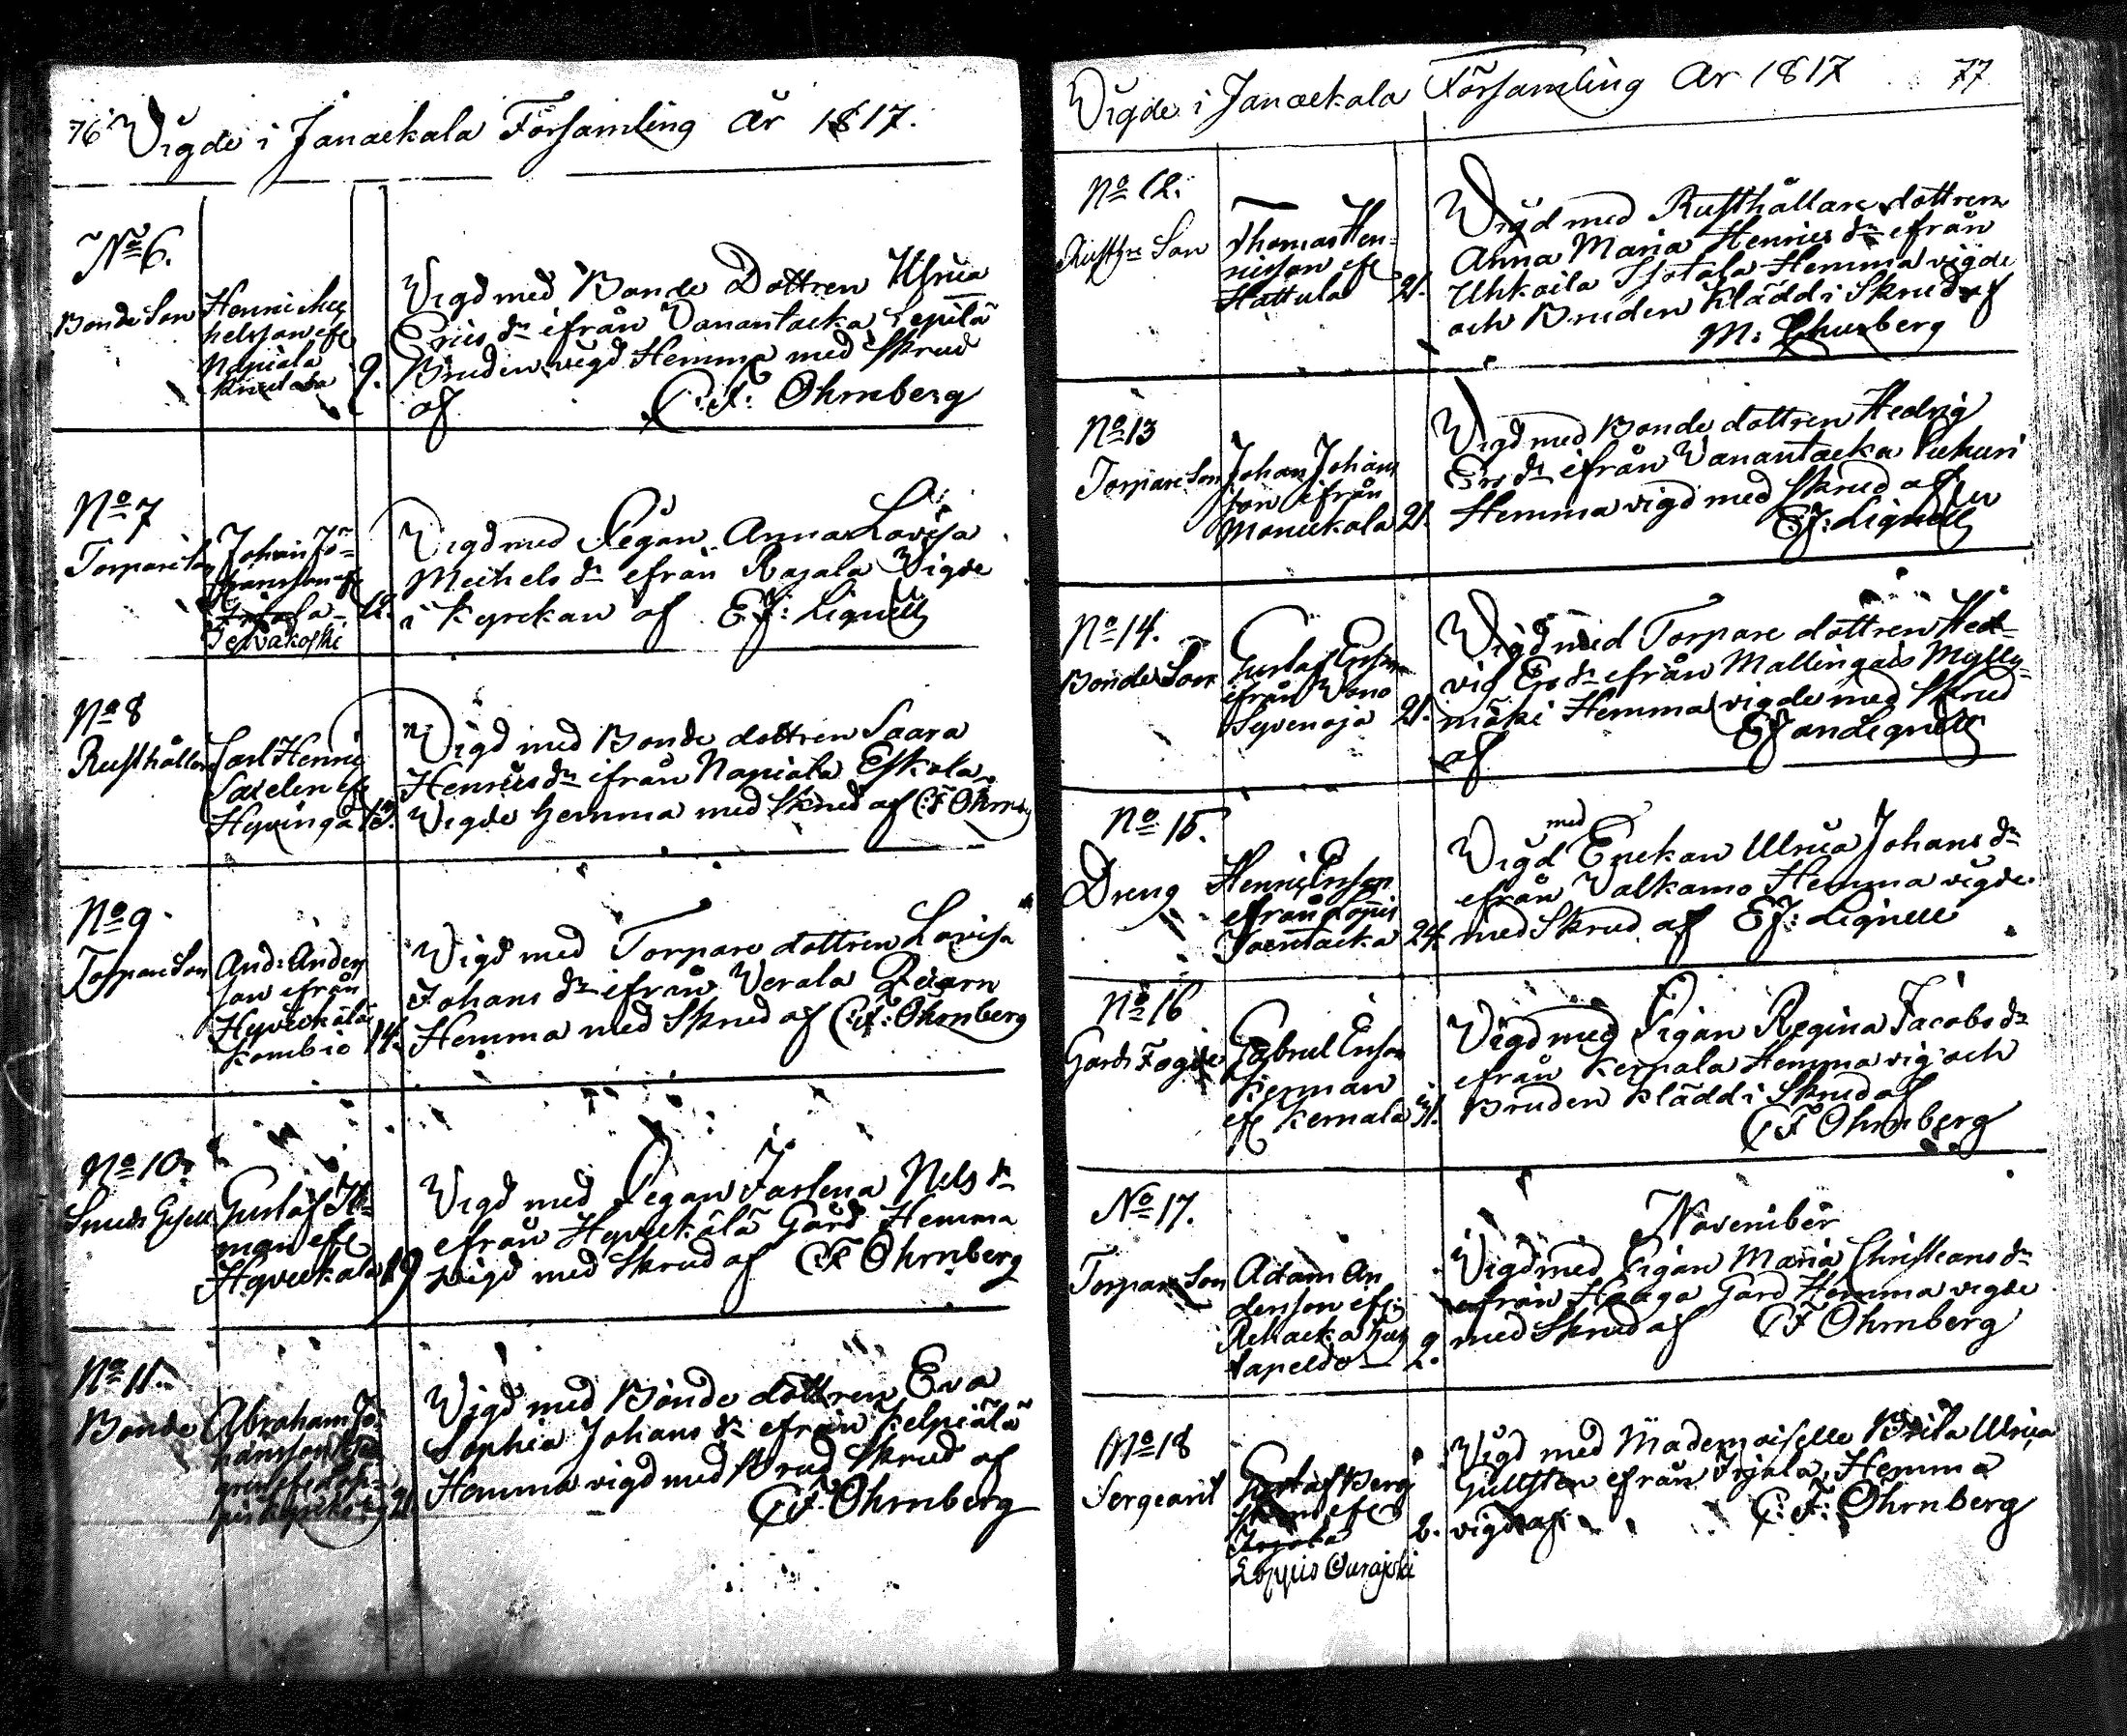 76 Vigde i Janackala Församling År 1817.
No 6.
Bonde Son
Henric Mic
helsson ifr
Napiala
Knutila 9.
Vigd med Bonde Dottren Ulrica
Erics dr ifrån Vanantacka Sepilä
Bruden vigd Hemma med Skrud
af C: F: Öhrnberg
No 7
Torpare Son
Johan Jo-
hansson ifr
Irjala 12.
Vigd med Pigan Anna Lovisa
Michels dr ifrån Rajala Vigde
i Kyrckan af EJ: Lignell
No 8
Rusthållare
Carl Henric
ifr
Hyvinga 13.
Vigd med Bonde dottren Saara
Henrics dr ifrån Napiala Eskola
Vigde Hemma med Skrud af C: F Öhrnb
No 9.
Torpare Son
And: Anders
son ifrån
Hyvickälä
Kombio 14.
Vigd med Torpare dottren Lovisa
Johans dr ifrån Verala
Hemma med Skrud af C: F: Öhrnberg
No 10.
Smeds Gesell
Gustaf
man ifr
Hyvickälä 19
Vigd med Pigan Nils dr
ifrån Hyvickälä Gård Hemma
vigd med Skrud af C F Öhrnberg
No 11.
Bonde
Abraham Jo-
hansson
21.
Vigd med Bonde dottren Eva
Sophia Johans dr ifrån Kelpiälä
Hemma vigd med Brud Skrud af
C: F. Öhrnberg
Vigde i Janackala Församling År 1817 77
No 12.
Rusth: Son
Thomas Hen-
ricsson ifr
Hattula 21.
Vigd med Rusthållare dottren
Anna Maria Henrics dr ifrån
Uhkoila Isotalo Hemma vigde
och Bruden klädd i Skrud af
M: Churberg
No 13
Torpare Son
Johan Johans
son ifrån
Monickala 21.
Vigd med Bonde dottren Hedvig
Ers dr ifrån Vanantacka
Hemma vigd med Skrud af
EJ: Lignell
No 14.
Bonde Son
Gustaf Ersson
ifrån Vano
Syvenoja 21.
Vigd med Torpare dottren Hed-
vig Ers dr ifrån Mallingais Mylly-
mäki Hemma vigde med Skrud
af EJ Lignell
No 15.
Dreng
Henric Ersson
ifrån Loppis
24.
Vigd med Enckan Ulrica Johans dr
ifrån Valkamo Hemma vigde
med Skrud af EJ: Lignell
No 16
Gårds Fogde
Gabriel Ersson
Kerman
ifr Kernala 31.
Vigd med Pigan Regina Jacobs dr
ifrån Kernala Hemma vig och
Bruden klädd i Skrud af
C F Öhrnberg
No 17.
November
Torpare Son
Adam An
dersson ifr
2.
Vigd med Pigan Maria Christians dr
ifrån Haaga Gård Hemma vigde
med Skrud af C F Öhrnberg
No 18
Sergeant
Gustaf Berg
ifr
Irjala
Loppis Ourajoki
2.
Vigd med Mademoiselle Brita Ulrica
Gullsten ifrån Irjala, Hemma
vigd af C: F: Öhrnberg